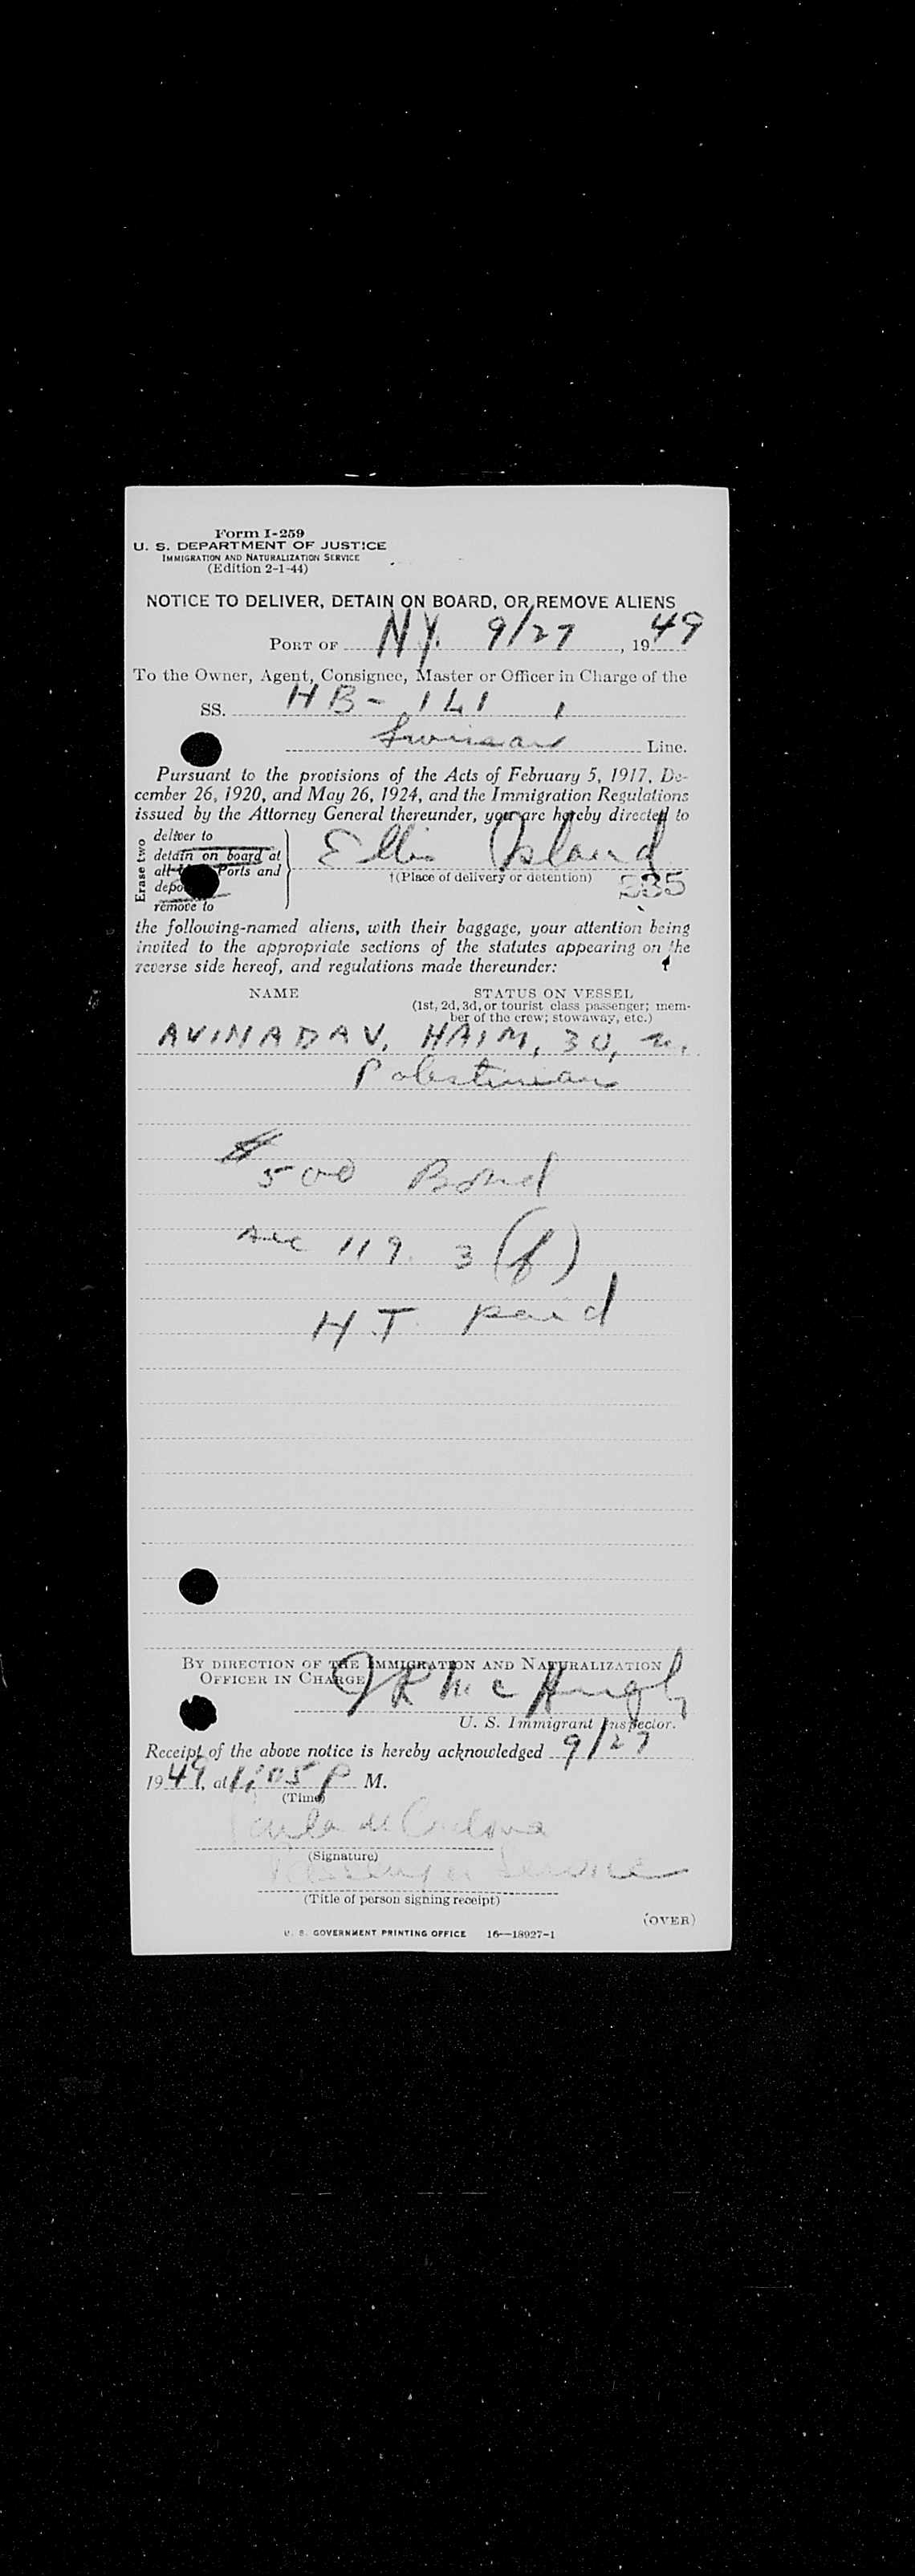 Form I-259
U. S. DEPARTMENT OF JUSTICE
IMMIGRATION AND NATURALIZATION SERVICE
(Edition 2-1-44)
NOTICE TO DELIVER, DETAIN ON BOARD, OR REMOVE ALIENS
PORT OF NY. 9/27, 1949
To the Owner, Agent, Consignee, Master or Officer in Charge of the
SS. HB-
Line.
Pursuant to the provisions of the Acts of February 5, 1917, De-
cember 26, 1920, and May 26, 1924, and the Immigration Regulations
issued by the Attorney General thereunder, you are hereby directed to
Erase two
deliver to
detain on board at
all Ports and
remove to
Ellis Island
†(Place of delivery or detention) 335
the following-named aliens, with their baggage, your attention being
invited to the appropriate sections of the statutes appearing on the
reverse side hereof, and regulations made thereunder:
NAME STATUS ON VESSEL
(1st, 2d, 3d, or tourist class passenger; mem-
ber of the crew; stowaway, etc.)
AVINADAV, HAIM, 30, m.
Palestinian
$500 Bond
119. 3 (f)
H.T. paid
BY DIRECTION OF THE IMMIGRATION AND NATURALIZATION
OFFICER IN CHARGE
J R McHugh
U. S. Immigrant Inspector.
Receipt of the above notice is hereby acknowledged 9/27
1949, at 1:05 P M.
(Time)
(Signature)
Passenger Service
(Title of person signing receipt)
(OVER)
U. S. GOVERNMENT PRINTING OFFICE 16—18927-1